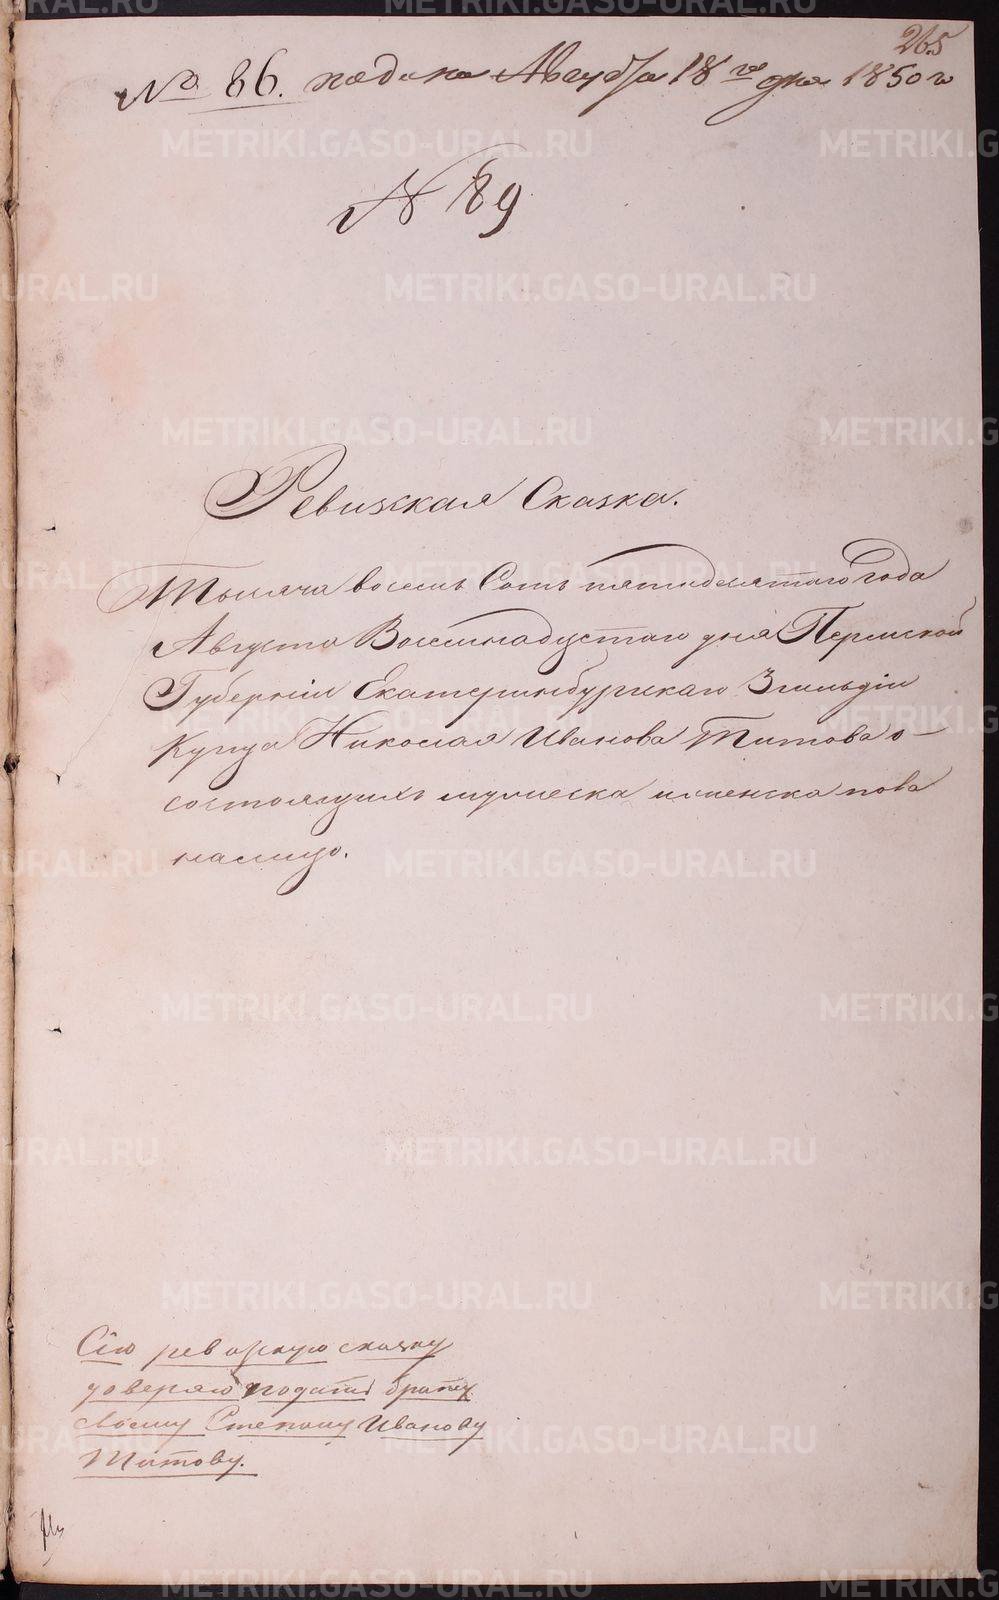 265
№ 86. подана Августа 18 го дня 1850 го
№ 89
Ревизская Сказка.
Тысяча восемь Сотъ пятидесятаго года
Августа Восемнадцатаго дня Пермской
Губерніи Екатеринбургскаго 3 гильдіи
Купца Николая Иванова Титова о
состоящихъ мужеска и женска пола
налицо.
Сію ревизскую сказку
доверяю подать брату
своему Степану Иванову
Титову.
METRIKI.GASO-URAL.RU